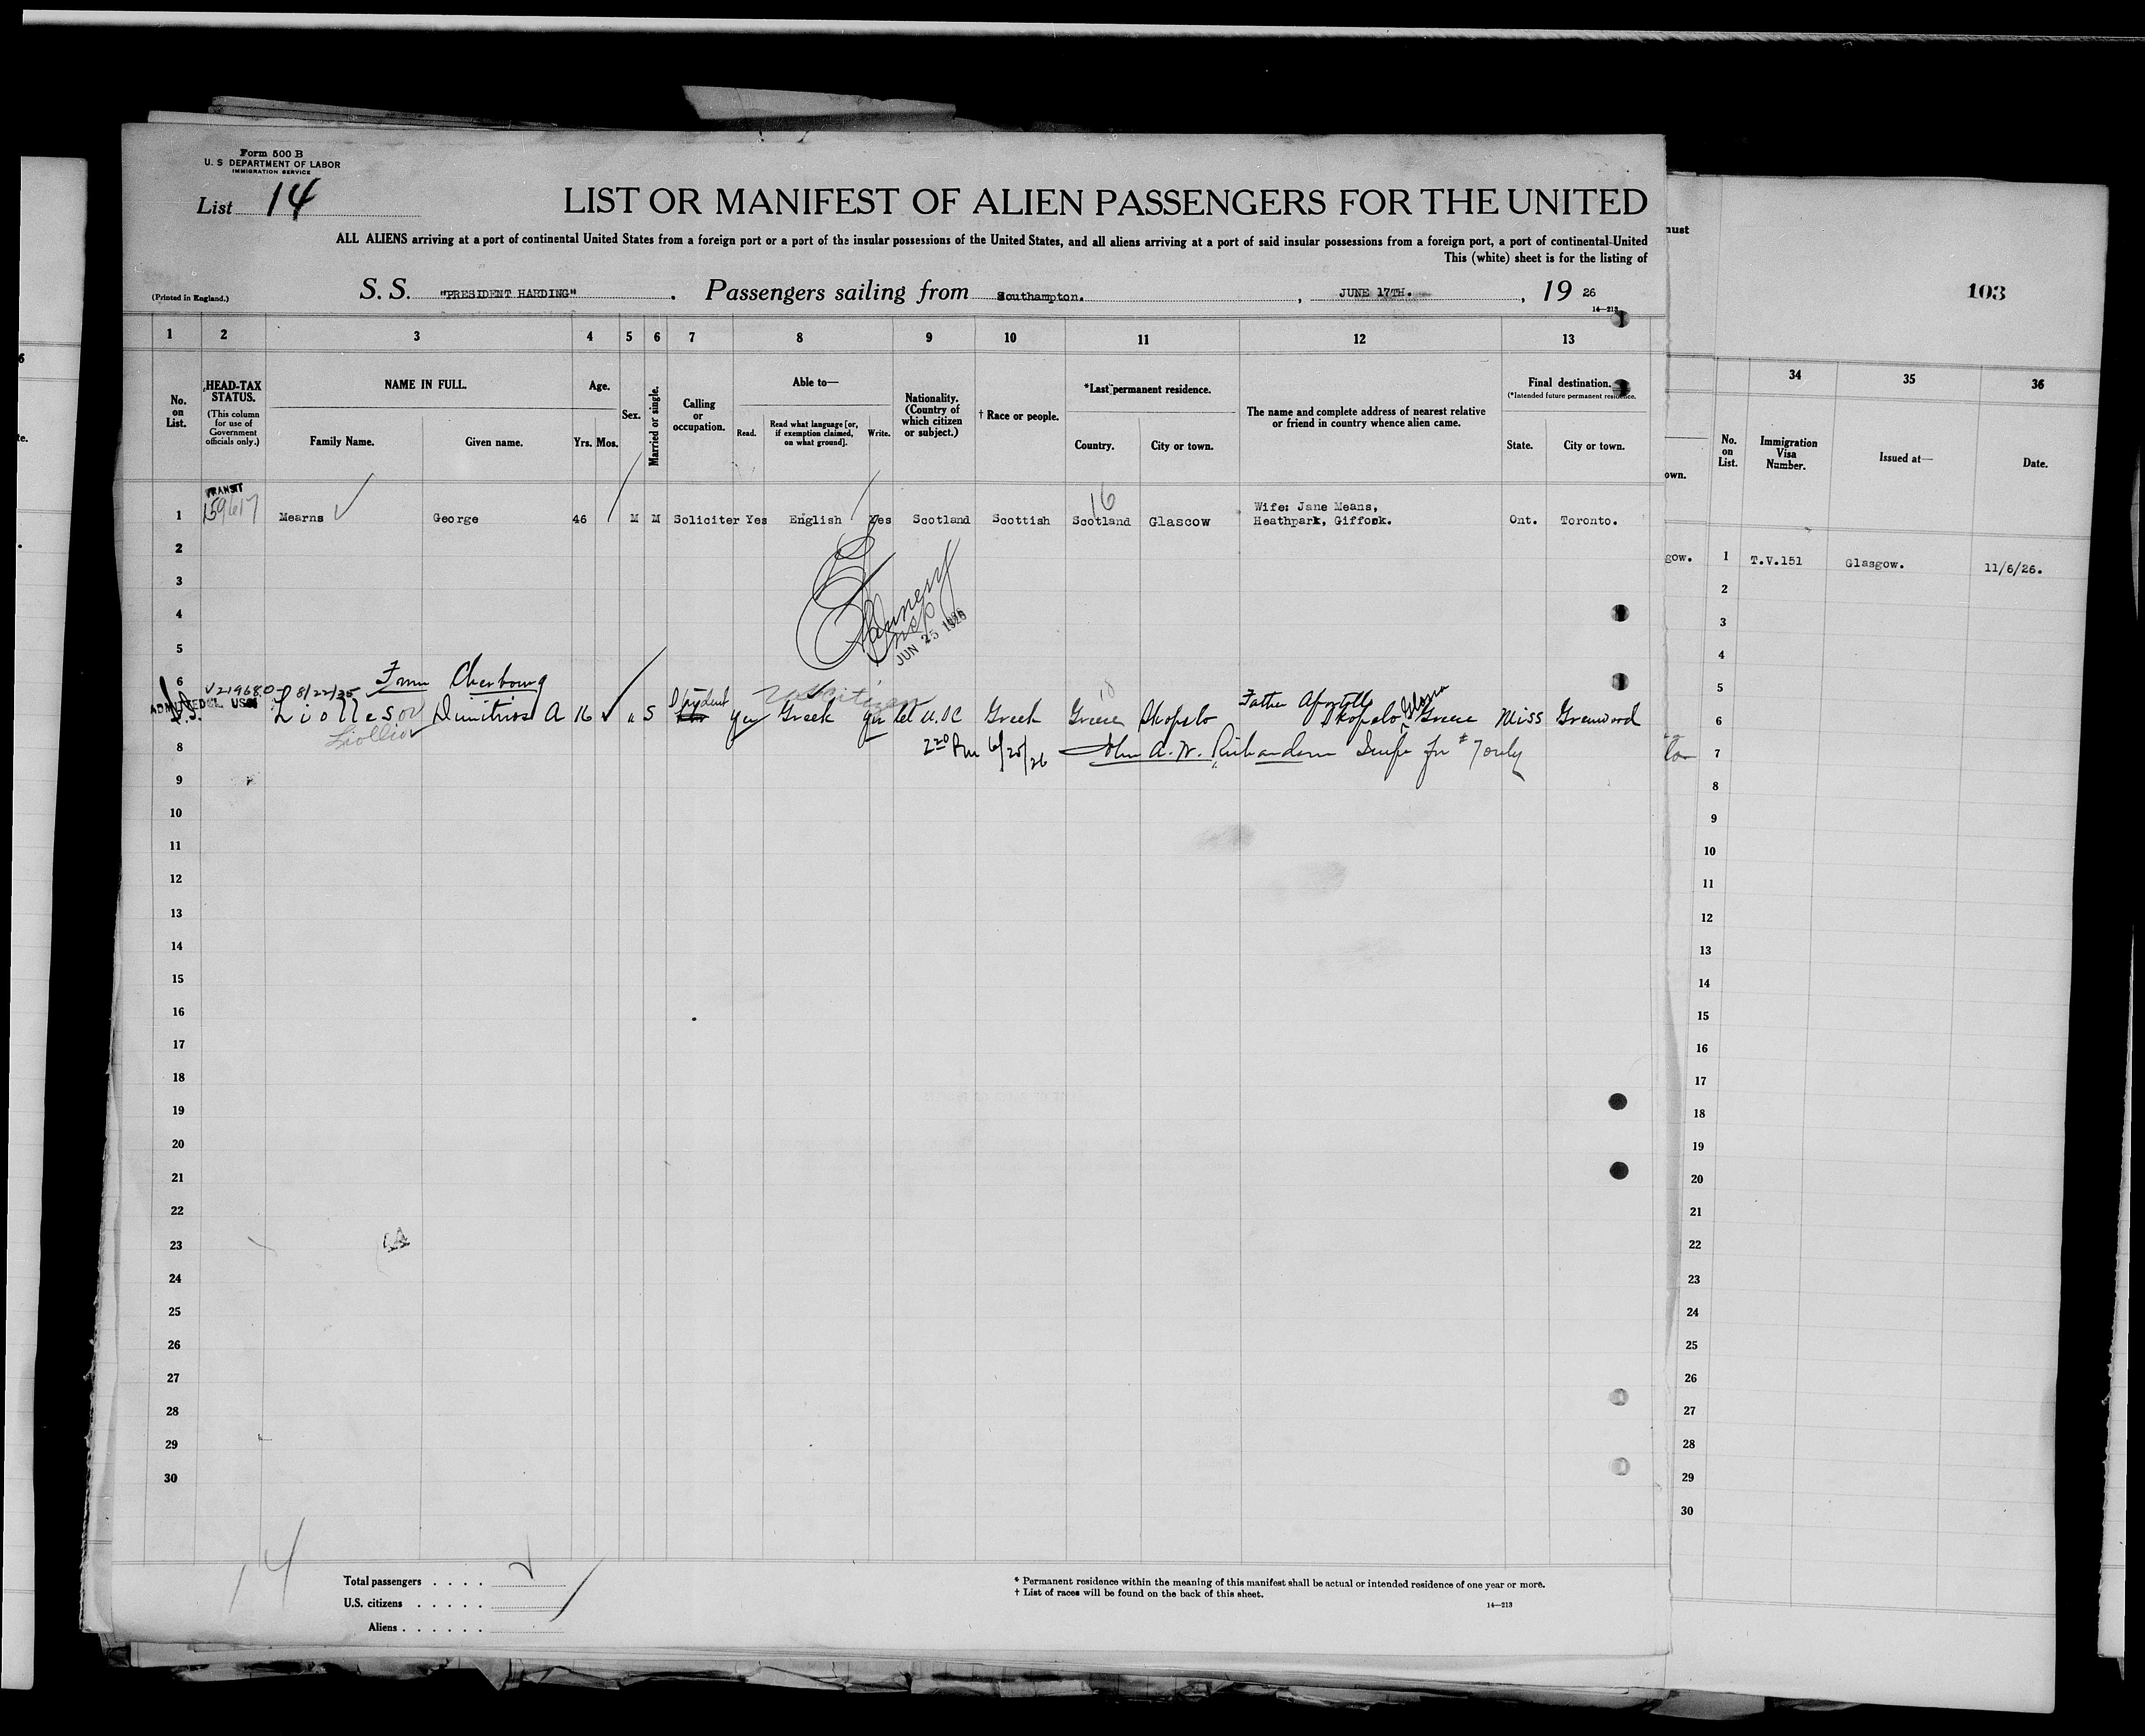 Form 500 B
U. S DEPARTMENT OF LABOR
IMMIGRATION SERVICE
List 14
LIST OR MANIFEST OF ALIEN PASSENGERS FOR THE UNITED
ALL ALIENS arriving at a port of continental United States from a foreign port or a port of the insular possessions of the United States, and all aliens arriving at a port of said insular possessions from a foreign port, a port of continental United
This (white) sheet is for the listing of
(Printed in England.)
S. S. "PRESIDENT HARDING" . Passengers sailing from Southampton. , JUNE 17TH. , 19 26
14—213
1 2 3 4 5 6 7 8 9 10 11 12 13
No. on List.
HEAD-TAX STATUS.
(This column for use of Government officials only.)
NAME IN FULL.
Family Name. Given name.
Age.
Yrs. Mos.
Sex.
Married or single.
Calling or occupation.
Able to—
Read. Read what language [or, if exemption claimed, on what ground]. Write.
Nationality. (Country of which citizen or subject.)
† Race or people.
*Last permanent residence.
Country. City or town.
The name and complete address of nearest relative or friend in country whence alien came.
Final destination.
(*Intended future permanent residence.
State. City or town.
TRANSIT
16
Wife: Jane Means,
1 Mearns George 46 M M Soliciter Yes English Yes Scotland Scottish Scotland Glascow Heathpark, Giffock. Ont. Toronto.
2
3
4
JUN 25 1926
5
6 From Cherbourg
8/22/25
Student
Father
Liolles Dimitrios A 16 S yes Greek yes Greek Greece Skopelo Skopelo Greece Miss Greenwood
8 6/25/26 John A. W. Richardson Insp for #7 only
9
10
11
12
13
14
15
16
17
18
19
20
21
22
23
24
25
26
27
28
29
30
14
Total passengers . . . .
U.S. citizens . . . . .
Aliens . . . . . .
* Permanent residence within the meaning of this manifest shall be actual or intended residence of one year or more.
† List of races will be found on the back of this sheet.
14—213
must
103
34 35 36
own.
No. on List.
Immigration Visa Number.
Issued at—
Date.
gow. 1 T.V.151 Glasgow. 11/6/26.
2
3
4
5
6
7
8
9
10
11
12
13
14
15
16
17
18
19
20
21
22
23
24
25
26
27
28
29
30